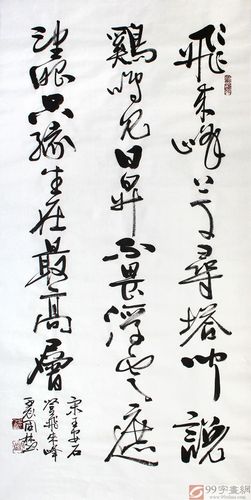 飛来峰上千尋塔聞說
鷄鳴見日昇不畏浮雲遮
望眼只緣身在最高層
宋王安石
登飛来峰
99字畫網